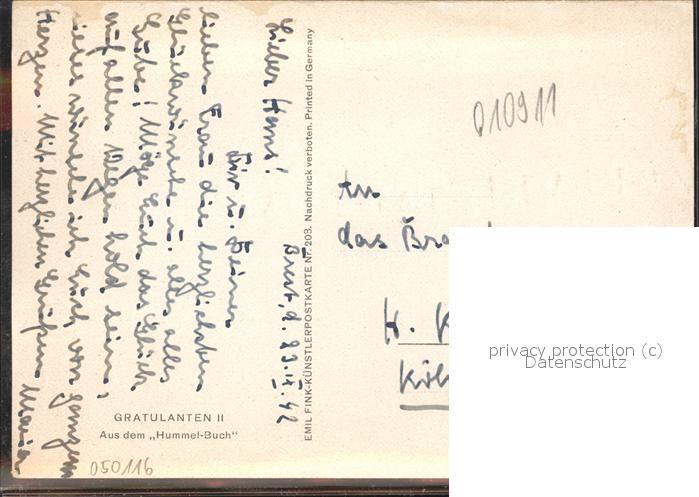 Lieber Hans!
d. 23.IX.42
Dir u. Deiner
lieben Frau die herzlichsten
Glückwünsche u. alles alles
Gute! Möge Euch das Glück
auf allen Wegen hold sein,
dieses wünsche ich Euch von ganzem
Herzen. Mit herzlichen Grüßen Maria
GRATULANTEN II
Aus dem „Hummel-Buch"
050116
EMIL FINK-KÜNSTLERPOSTKARTE Nr. 203. Nachdruck verboten. Printed in Germany
010911
An
das
H. K
Köl
privacy protection (c)
Datenschutz